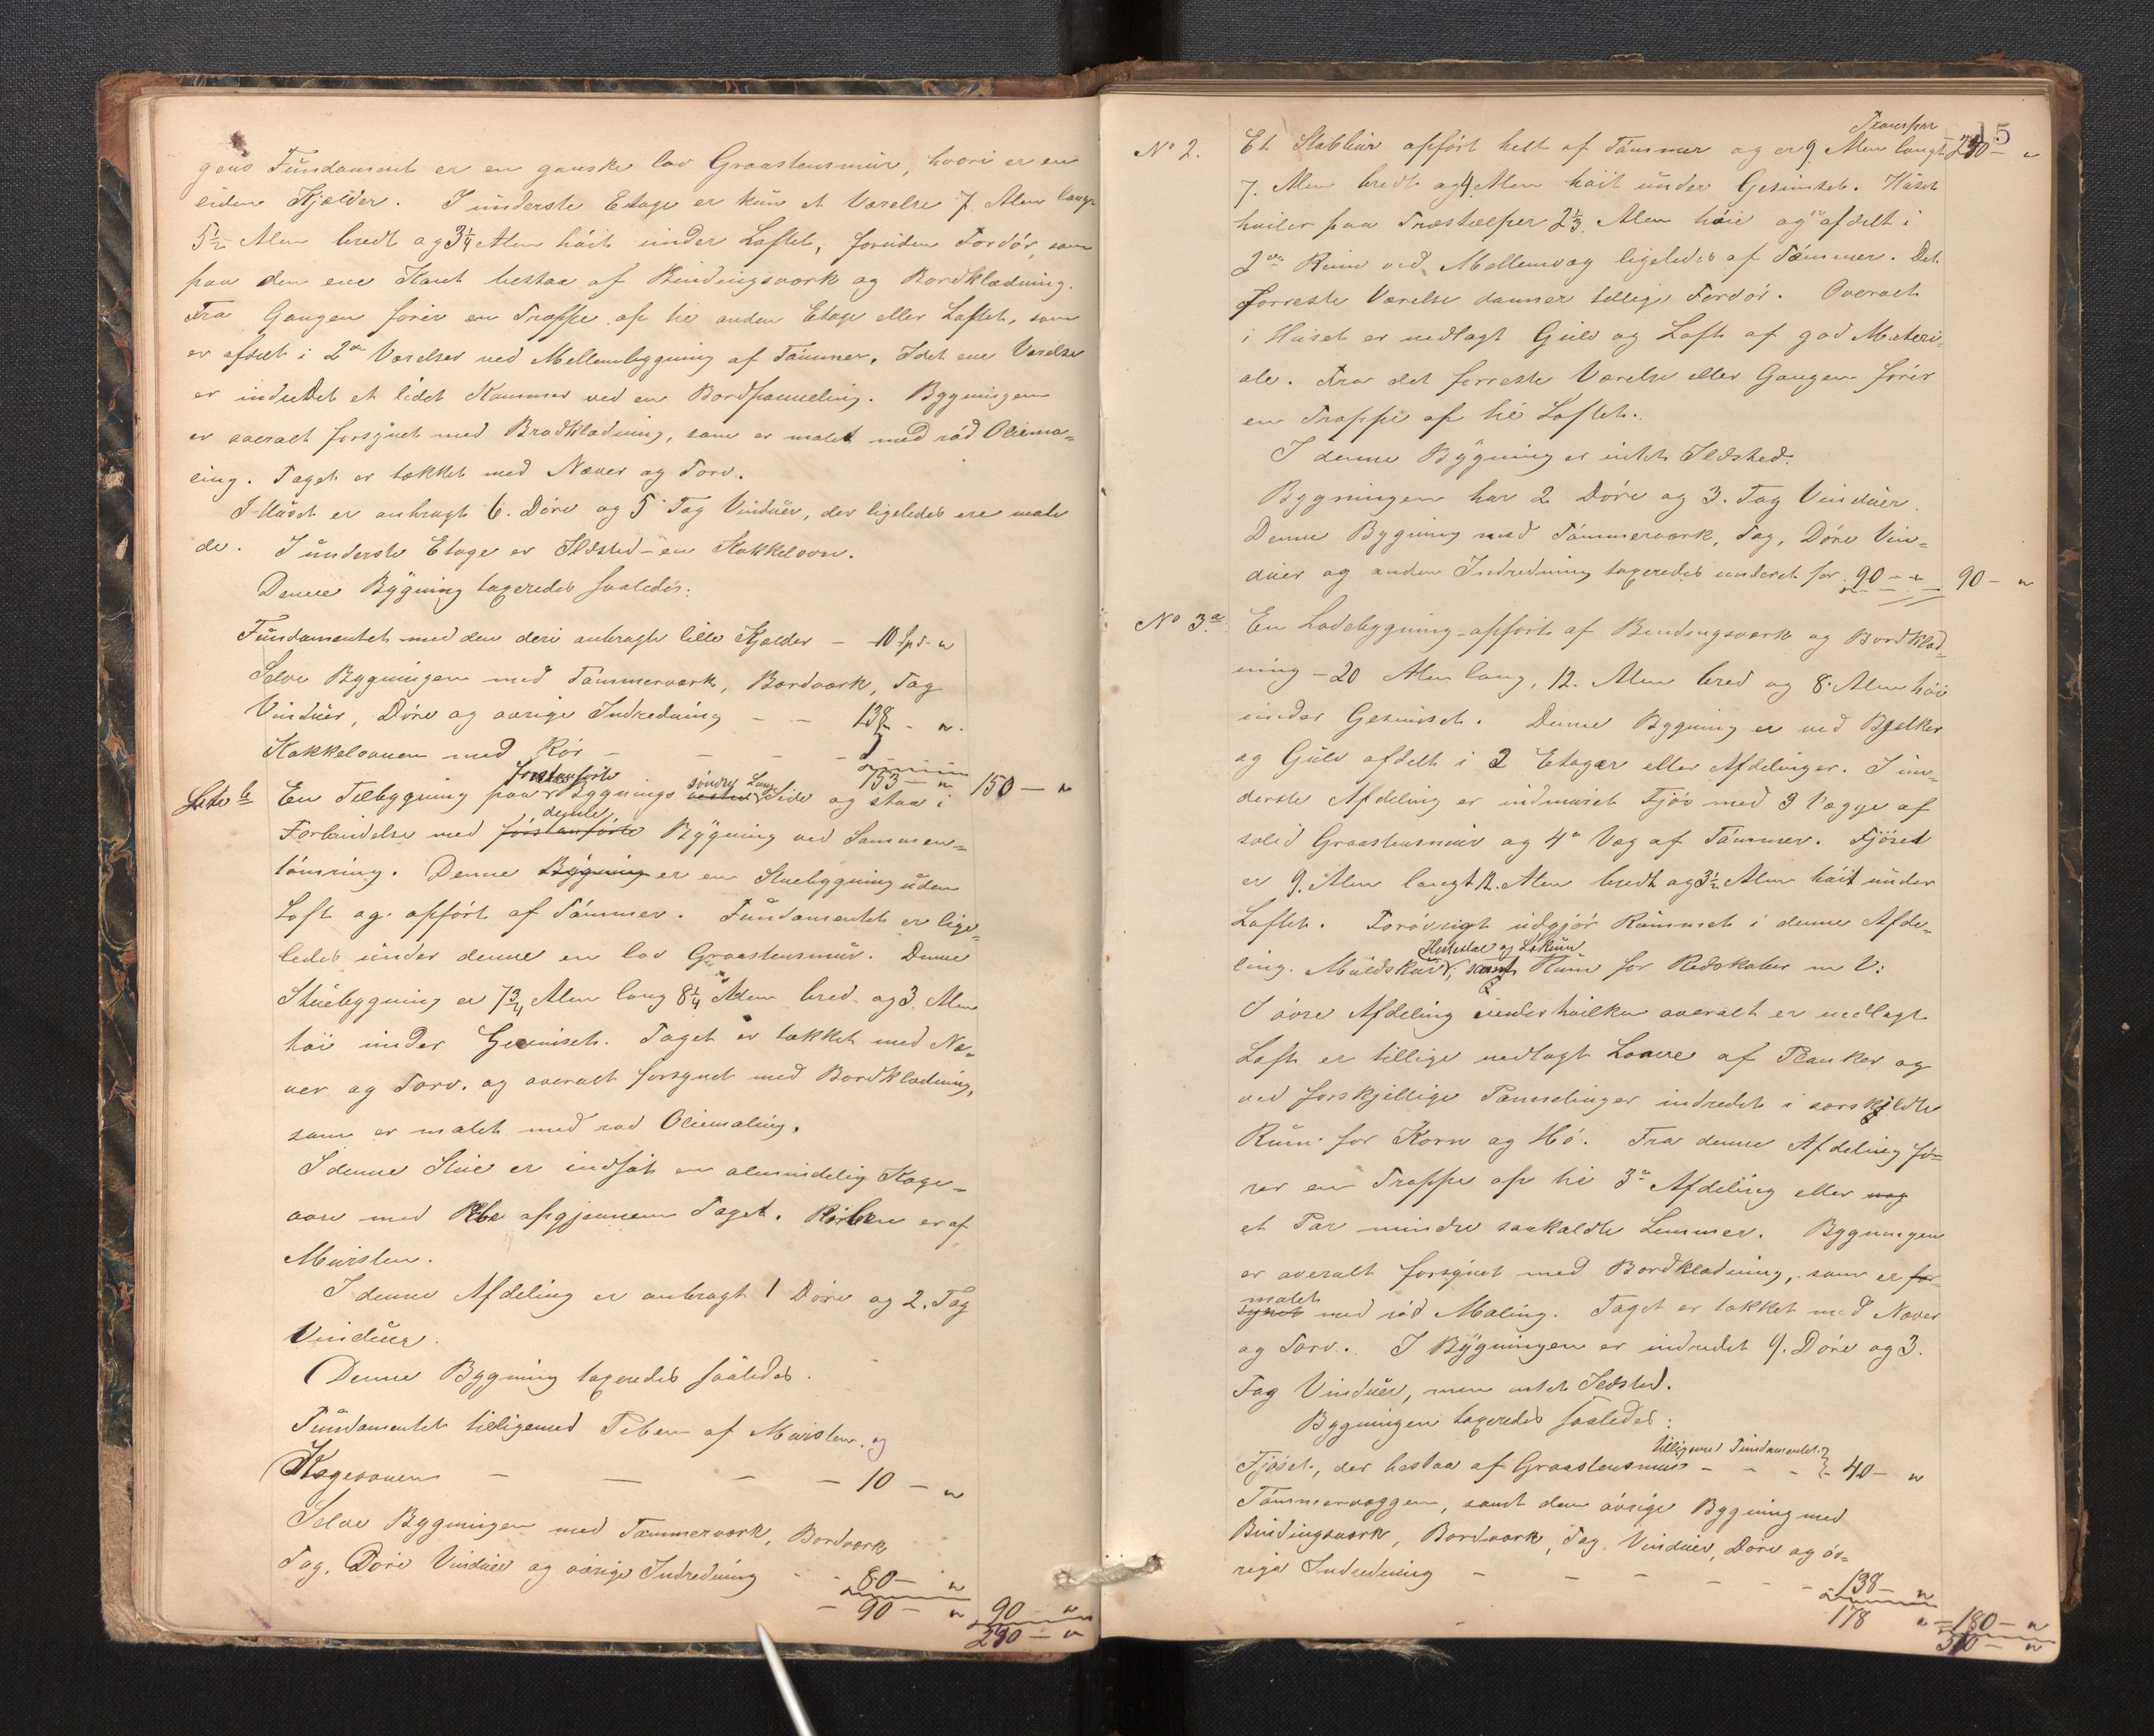 gens Fundament er en ganske lav Graastensmur, hvori er en
liden Kjælder. I underste Etage er kun et Værelse 7. Alen langt
5½ Alen bredt og 3¼ Alen høit under Loftet, foruden Fordør, som
paa den ene Kant bestaar af Bindingsværk og Bordklædning.
Fra Gangen fører en Trappe op til anden Etage eller Loftet, som
er afdelt i 2de Værelser ved Mellembygning af Tømmer. I det ene Værelse
er indredet et lidet Kammer ved en Bordpanneling. Bygningen
er overalt forsynet med Bordklædning, som er malet med rød Oliema=
ling. Taget er tækket med Næver og Torv.
I Huset er anbragt 6. Døre og 5 Fag Vinduer, der ligeledes ere male
de. I underste Etage er Ildsted - en Kakkelovn.
Denne Bygning taxeredes saaledes:
Fundamentet med den deri anbragte lille Kjælder — 10 Spd. "
Selve Bygningen med Tømmerværk, Bordværk, Tag
Vinduer, Døre og øvrige Indredning — — 138 - "
Kakkelovnen med Rør — — — — 5
153 — " 150 — "
forstanførte søndre Lang
Litr b En Tilbygning paa Bygnings Side og staar i
denne
Forbindelse med forstanførte Bygning ved Sammen=
tømring. Denne Bygning er en Stuebygning uden
Loft og opført af Tømmer. Fundamentet er lige=
ledes under denne en lav Graastensmur. Denne
Stuebygning er 7¾ Alen lang 8¼ Alen bred og 3. Alen
høi under Gesimset. Taget er tækket med Næ=
ver og Torv. og overalt forsynet med Bordklædning,
som er malet med rød Oliemaling.
I denne Stue er indsat en almindelig Koge=
ovn med Pibe opgjennem Taget. Piben er af
Mursten.
I denne Afdeling er anbragt 1 Døre og 2. Fag
Vinduer.
Denne Bygning taxeredes saaledes.
Fundamentet tilligemed Piben af Mursten. og
Kogeovnen — — — — 10 — "
Selve Bygningen med Tømmerværk, Bordværk
Tag, Døre Vinduer og øvrige Indredning — — 80 — "
— 90 — " 90 — "
240 — "
15
Transpor
No 2. Et Stabbur opført helt af Tømmer og er 9 Alen langt 240 — "
7. Alen bredt og 4 Alen høit under Gesimset. Huset
hviler paa Træstolper 2⅓ Alen høie og er afdelt i
2de Rum ved Mellemvæg ligeledes af Tømmer. Det
forreste Værelse danner tillige Fordør. Overalt
i Huset er nedlagt Gulv og Loft af god Materi=
ale. Fra det forreste Værelse eller Gangen fører
en Trappe op til Loftet.
I denne Bygning er intet Ildsted.
Bygningen har 2 Døre og 3. Fag Vinduer.
Denne Bygning med Tømmerværk, Tag, Døre Vin=
duer og anden Indredning taxeredes underet for 90 — " 90 — "
No 3.a En Ladebygning opført af Bindingsværk og Bordklæd=
ning - 20 Alen lang, 12. Alen bred og 8. Alen høi
under Gesimset. Denne Bygning er ved Bjelker
og Gulv afdelt i 2 Etager eller Afdelinger. I un=
derste Afdeling er indmuret Fjøs med 3 Vægge af
solid Graastensmur og 4a Væg af Tømmer. Fjøset
er 9. Alen langt 12. Alen bredt og 3½ Alen høit under
Loftet. Forøvrigt udgjør Rummet i denne Afde=
Hestestal og Løkum
ling. Muldskur, samt Rum for Redskaber m V:
I øvre Afdeling under hvilken overalt er nedlagt
Loft er tillige nedlagt Loave af Planker og
ved forskjellige Pannelinger indredet i særskildte
Rum for Korn og Hø. Fra denne Afdeling fø=
rer en Trappe op til 3a Afdeling eller nog
et Par mindre saakaldte Lemmer. Bygningen
er overalt forsynet med Bordklædning, som er for
malet
synet med rød Maling. Taget er tækket med Næver
og Torv. I Bygningen er indredet 9. Døre og 3.
Fag Vinduer, men intet Ildsted.
Bygningen taxeredes saaledes:
tilligemed Fundamentet
Fjøset, der bestaar af Graastensmur — — — 40 — "
Tømmervæggen, samt den øvrige Bygning med
Bindingsværk, Bordværk, Tag. Vinduer, Døre og øv=
rige Indredning — — — — — — 138 — "
178 " — 180 — "
510 — "